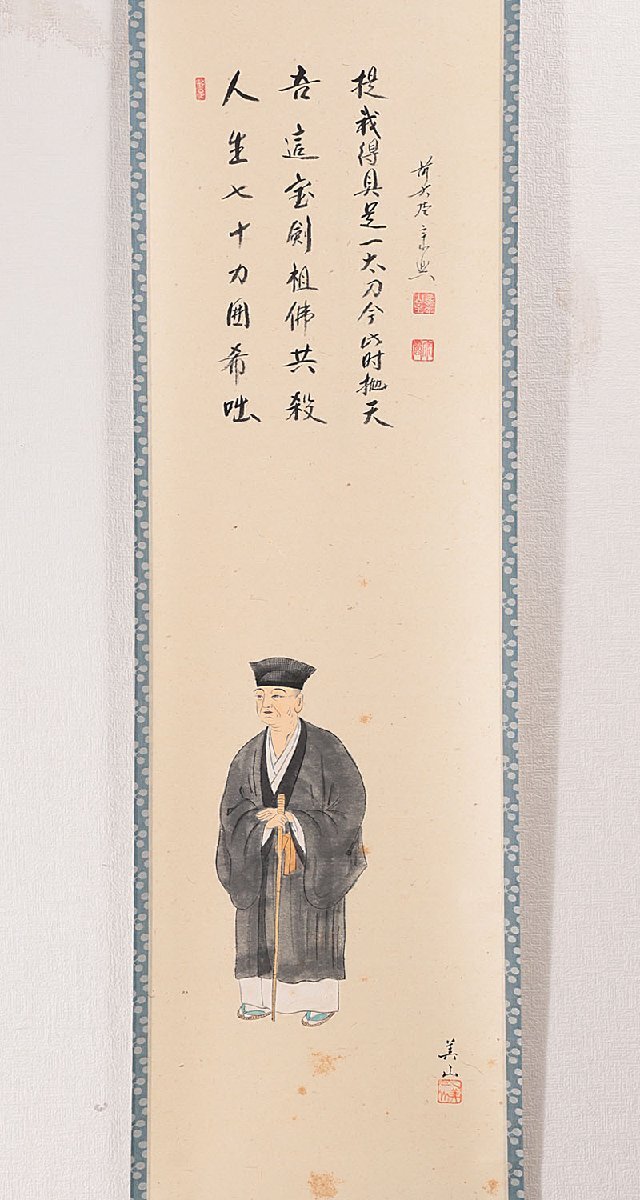 人生七十力囲希咄
吾這宝剣祖佛共殺
提我得具足一太刀今此时抛天
宗興
美山